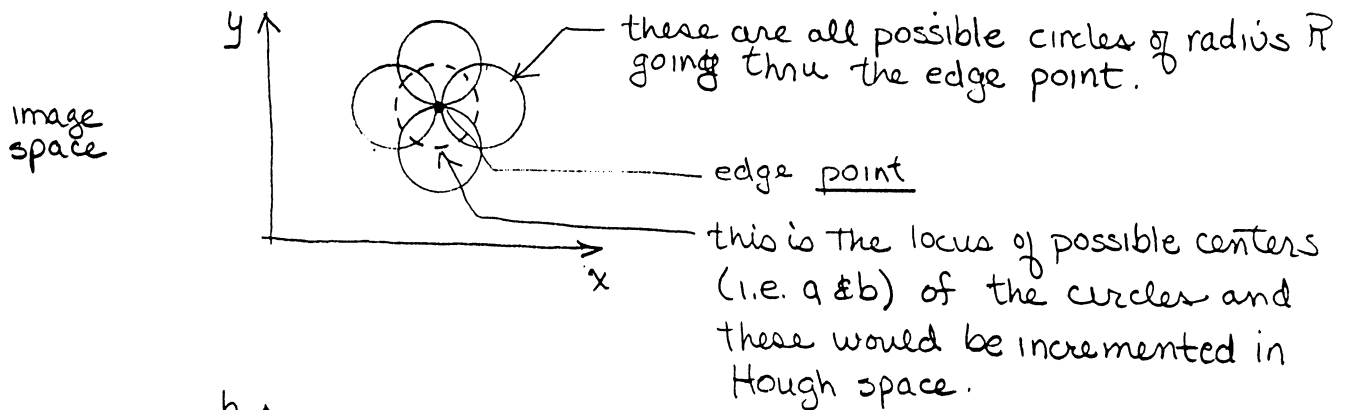 y
these are all possible circles of radius R
going thru the edge point.
image
space
edge point
this is the locus of possible centers
x
(i.e. a & b) of the circles and
these would be incremented in
Hough space.
b